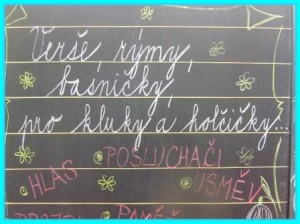 Verše, rýmy,
básničky,
pro kluky a holčičky...
POSLUCHAČI
HLAS
ÚSMĚV